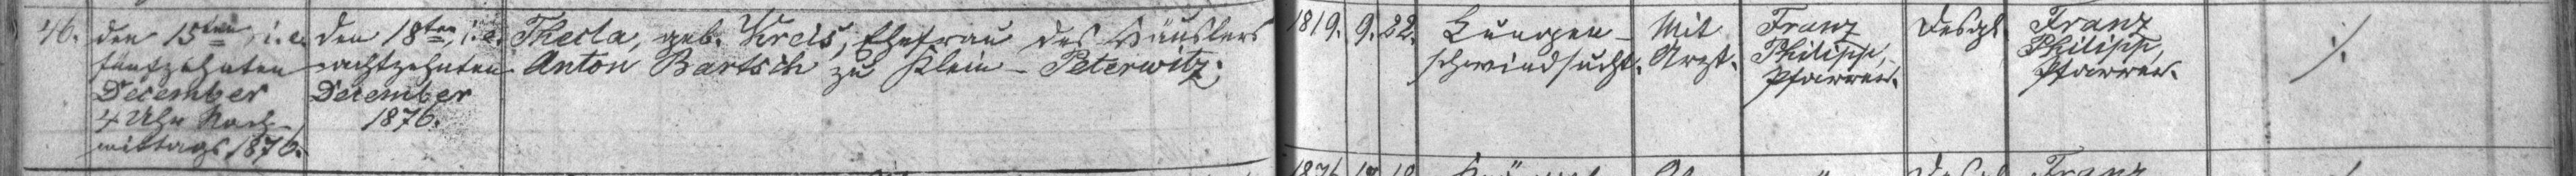 46.
den 15ten, i.e. fünfzehnten December 4 Uhr Nach-mittags 1876.
den 18ten, i.e. achtzehnten December 1876.
Thecla, geb. Kreis, Ehefrau des Häuslers
Anton Bartsch zu Klein-Peterwitz.
1819. 9. 22.
Lungen-
schwindsucht.
Mit
Arzt.
Franz
Philipp,
Pfarrer.
Desgl.
Franz
Philipp,
Pfarrer.